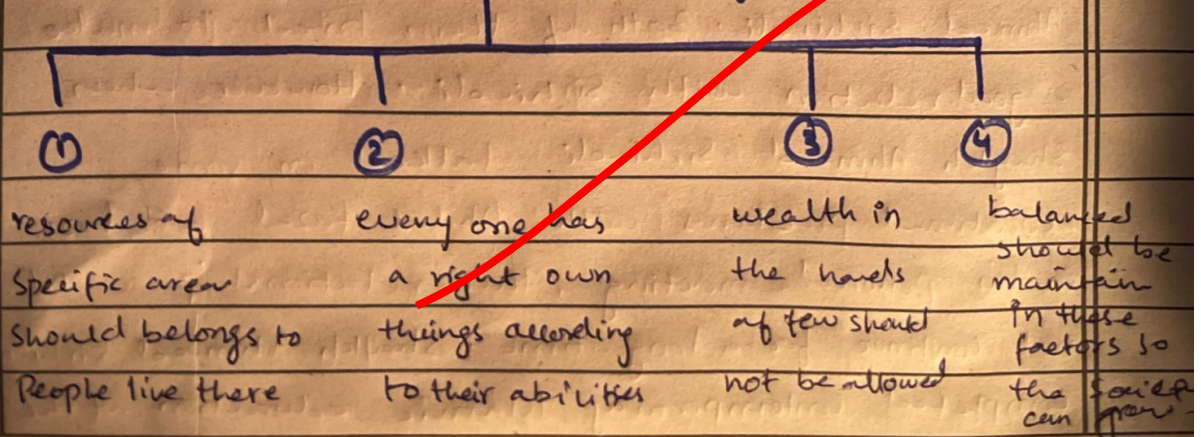 1
2
3
4
resources of
specific area
should belongs to
People live there
every one has
a right own
things according
to their abilities
wealth in
the hands
of few should
not be allowed
balanced
should be
maintain
in these
factors so
the societ
can grow.